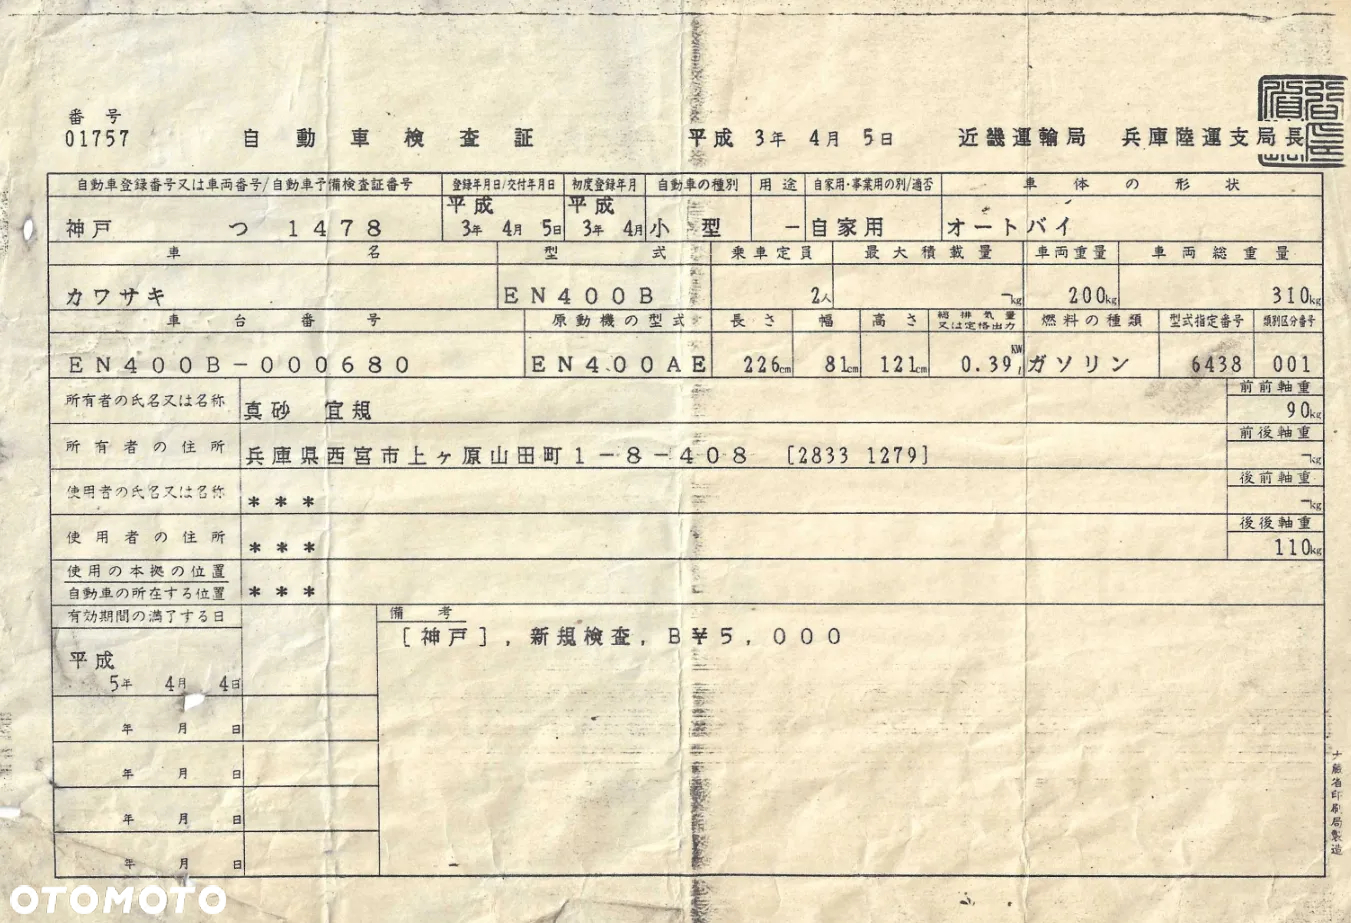 番号
01757 自動車検査証 平成 3年 4月 5日 近畿運輸局 兵庫陸運支局長
自動車登録番号又は車両番号/自動車予備検査証番号 登録年月日/交付年月日 初度登録年月 自動車の種別 用途 自家用・事業用の別/適否 車体の形状
平成 平成
神戸 つ 1478 3年 4月 5日 3年 4月 小型 － 自家用 オートバイ
車名 型式 乗車定員 最大積載量 車両重量 車両総重量
カワサキ EN400B 2人 kg 200kg 310kg
車台番号 原動機の型式 長さ 幅 高さ 総排気量又は定格出力 燃料の種類 型式指定番号 類別区分番号
EN400B-000680 EN400AE 226cm 81cm 121cm 0.39 KW l ガソリン 6438 001
所有者の氏名又は名称 真砂 宜規 前前軸重
90kg
所有者の住所 兵庫県西宮市上ヶ原山田町1-8-408 [2833 1279] 前後軸重
kg
使用者の氏名又は名称 *** 後前軸重
kg
使用者の住所 *** 後後軸重
110kg
使用の本拠の位置
自動車の所在する位置 ***
有効期間の満了する日 備考
平成 [神戸], 新規検査, B¥5,000
5年 4月 4日
年 月 日
年 月 日
年 月 日
年 月 日
大蔵省印刷局製造
OTOMOTO